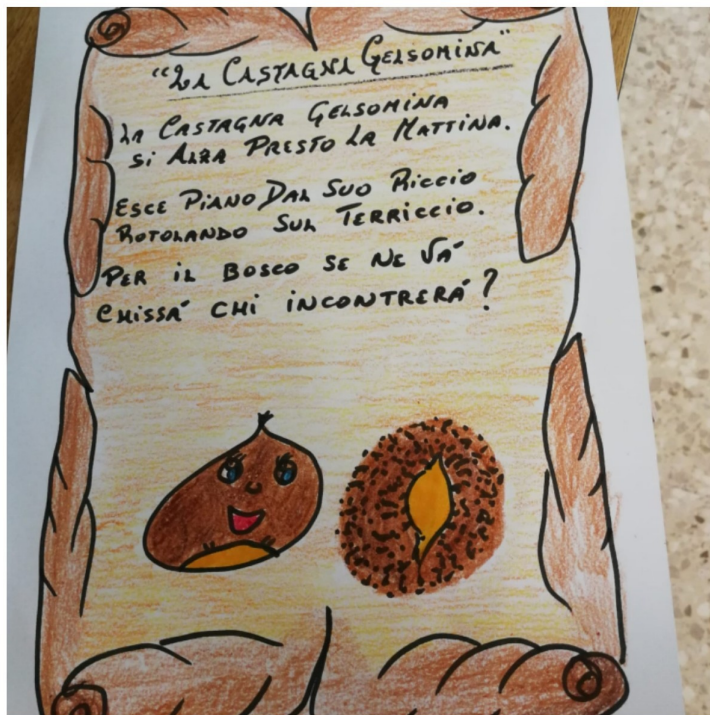 "LA CASTAGNA GELSOMINA"
LA CASTAGNA GELSOMINA
SI ALZA PRESTO LA MATTINA.
ESCE PIANO DAL SUO RICCIO
ROTOLANDO SUL TERRICCIO.
PER IL BOSCO SE NE VA'
CHISSA' CHI INCONTRERA'?